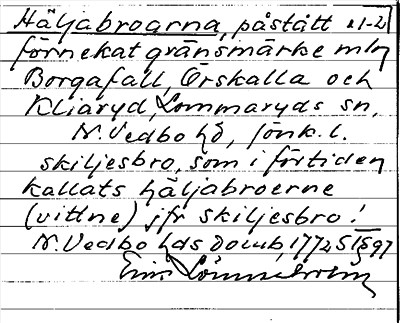 Häljabroarna, påstått 1-2
förnekat gränsmärke mln
Borgafall, Örskalla och
Kliaryd, Lommaryds sn,
N. Vedbo hd, Jönk. l.
skiljesbro, som i förtiden
kallats häljabroerne
(vittne) jfr skiljesbro!
N. Vedbo hds domb, 1772 § 97